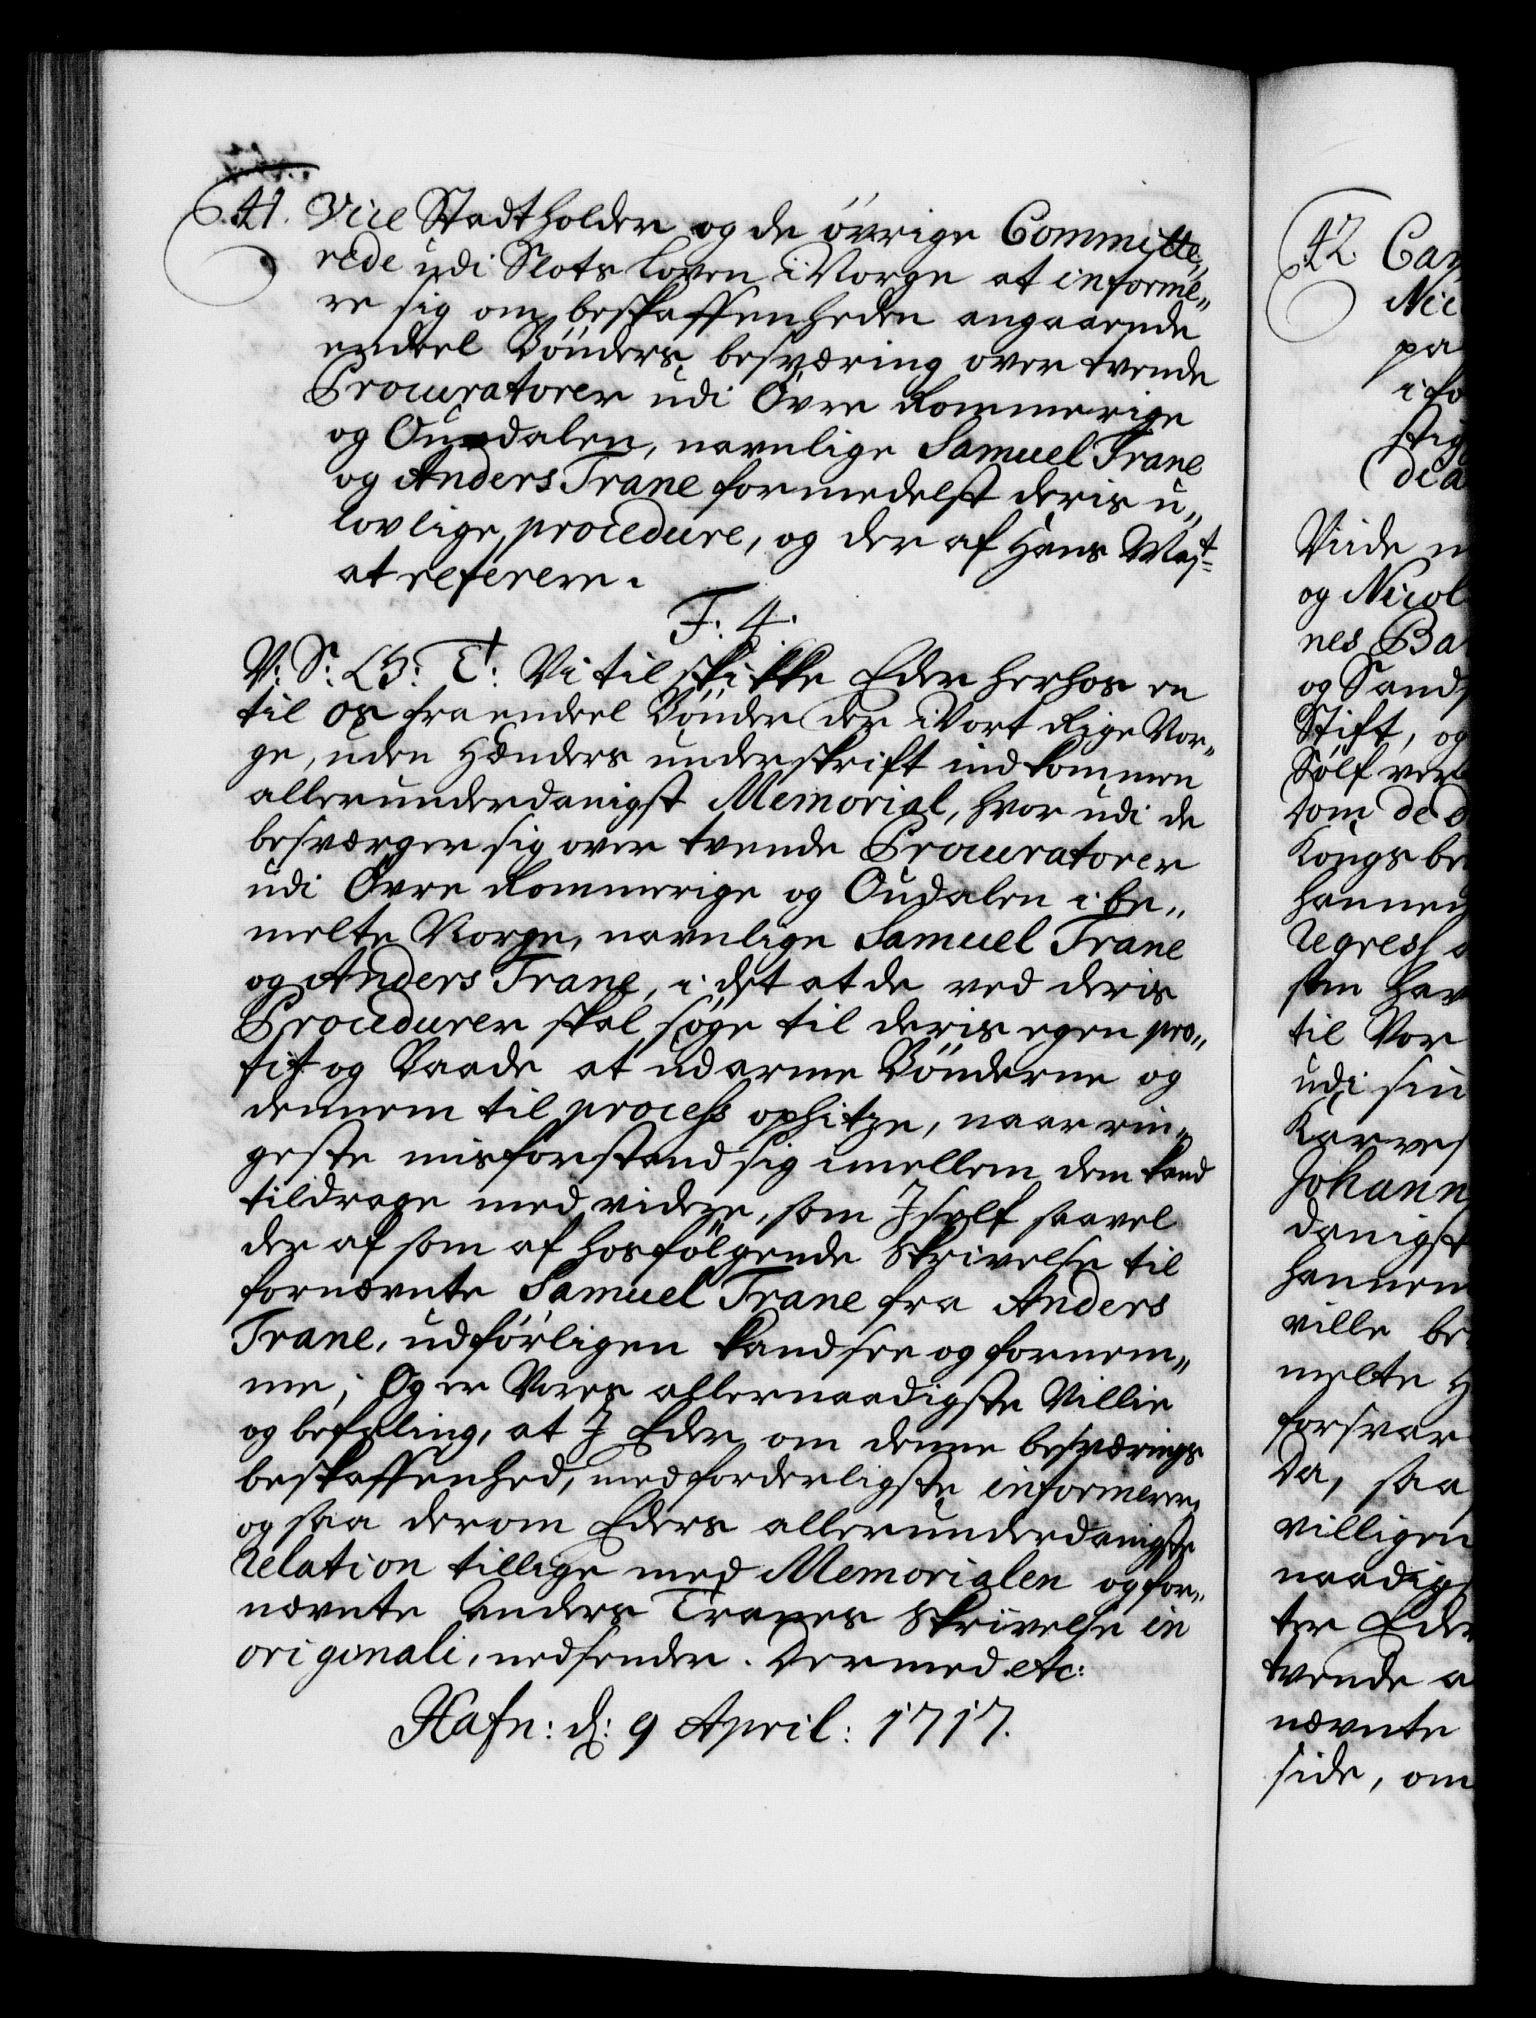 41. Vice Stadtholder og de övrige Committe„
rede udi Slots Loven i Norge at informe„
re sig om beskaffenheden angaaende
endeel Bönders besværing over tvende
Procuratorer udi Övre Rommerige
og Oudalen, navnlige Samuel Trane
og Anders Trane formedelst deris u„
lovlige procedure, og der af Hans Mayt
at referere.
F: 4.
V: S: G: T: Vi tilskikke Eder herhos en
til os fra endeel Bönder der i Vort Rige Nor„
ge, uden Hænders underskrift indkommen
allerunderdanigst Memorial, hvor udi de
besværger sig over tvende Procuratorer
udi Övre Rommerige og Oudalen i be„
melte Norge, navnlige Samuel Trane
og Anders Trane, i det at de ved deris
Procedurer skal söge til deris egen pro„
fit og Baade at udarme Bönderne og
dennem til process ophitze, naar rin„
geste misforstand sig imellem dem kand
tildrage med videre, som I self saavel
der af som af hosfölgende skrivelse til
fornævnte Samuel Trane fra Anders
Trane, udförligen kand see og fornem„
me; Og er Vores allernaadigste Villie
og befaling, at I Eder om denne besværings
beskaffenhed, med forderligste informerer,
og saa derom Eders allerunderdanigste
relation tillige med Memorialen og for„
nævnte Anders Tranes skrivelse in
originali, nedsender. Dermed etc:
Hafn: d: 9 April: 1717.
42. Can
Nic
pa
i fo
stig
de a
Viide
og Nicol
nes Ba
og Sand
Stift, og
Sölfver
dom de
Kongsbe
hannem
Regress
som har
til Vor
udi sin
Karves
Johann
danigst
hannem
ville be
melte H
forsvar
da, saa
villigen
naadig
ter Eder
tvende a
nævnte
side, om